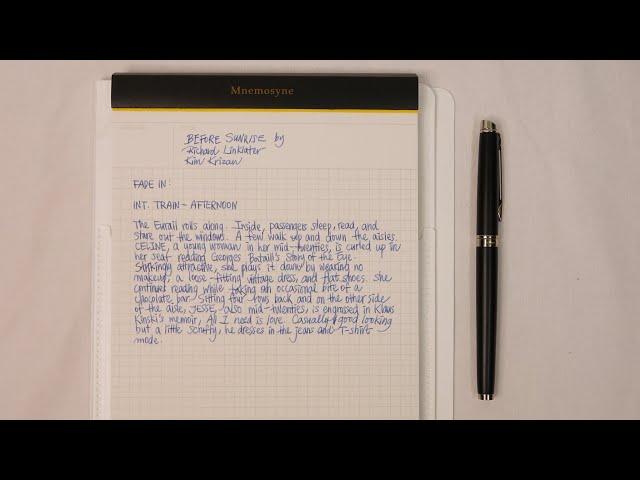 Mnemosyne
BEFORE SUNRISE by
Richard Linklater
Kim Krizan
FADE IN:
INT. TRAIN - AFTERNOON
The Eurail rolls along. Inside, passengers sleep, read, and
stare out the windows. A few walk up and down the aisles.
CELINE, a young woman in her mid-twenties, is curled up in
her seat reading Georges Batail's Story of the Eye.
Strikingly attractive, she plays it down by wearing no
makeup, a loose-fitting vintage dress, and flat shoes. She
continues reading while taking an occasional bite of a
chocolate bar. Sitting four rows back and on the other side
of the aisle, JESSE, also mid-twenties, is engrossed in Klaus
Kinski's memoir, All I need is love. Casually good looking
but a little scruffy, he dresses in the jeans and T-shirt
mode.